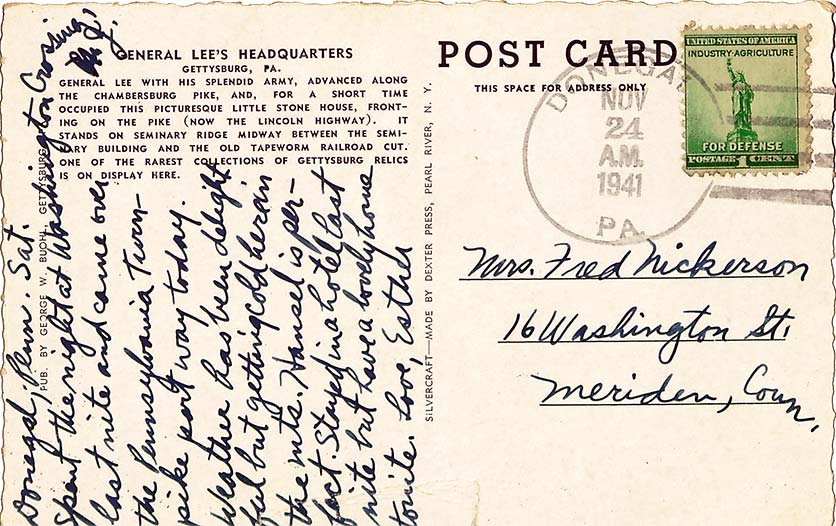 GENERAL LEE'S HEADQUARTERS
GETTYSBURG, PA.
GENERAL LEE WITH HIS SPLENDID ARMY, ADVANCED ALONG
THE CHAMBERSBURG PIKE, AND, FOR A SHORT TIME
OCCUPIED THIS PICTURESQUE LITTLE STONE HOUSE, FRONT-
ING ON THE PIKE (NOW THE LINCOLN HIGHWAY). IT
STANDS ON SEMINARY RIDGE MIDWAY BETWEEN THE SEMI-
NARY BUILDING AND THE OLD TAPEWORM RAILROAD CUT.
ONE OF THE RAREST COLLECTIONS OF GETTYSBURG RELICS
IS ON DISPLAY HERE.
PUB. BY GEORGE W. BUOHL, GETTYSBURG
Donegal, Penn. Sat.
Spent the night at Washington Crossing, N. J.
last nite and came over
the Pennsylvania Turn-
pike part way today.
Weather has been delight
ful but getting cold here in
the mts. Hansel is per-
fect. Stayed in a hotel last
nite but have a lovely house
tonite. Love, Esther
SILVERCRAFT—MADE BY DEXTER PRESS, PEARL RIVER, N. Y.
POST CARD
THIS SPACE FOR ADDRESS ONLY
DONEGAL
NOV
24
A.M.
1941
PA.
UNITED STATES OF AMERICA
INDUSTRY·AGRICULTURE
FOR DEFENSE
POSTAGE 1 CENT
Mrs. Fred Nickerson
16 Washington St.
Meriden, Conn.